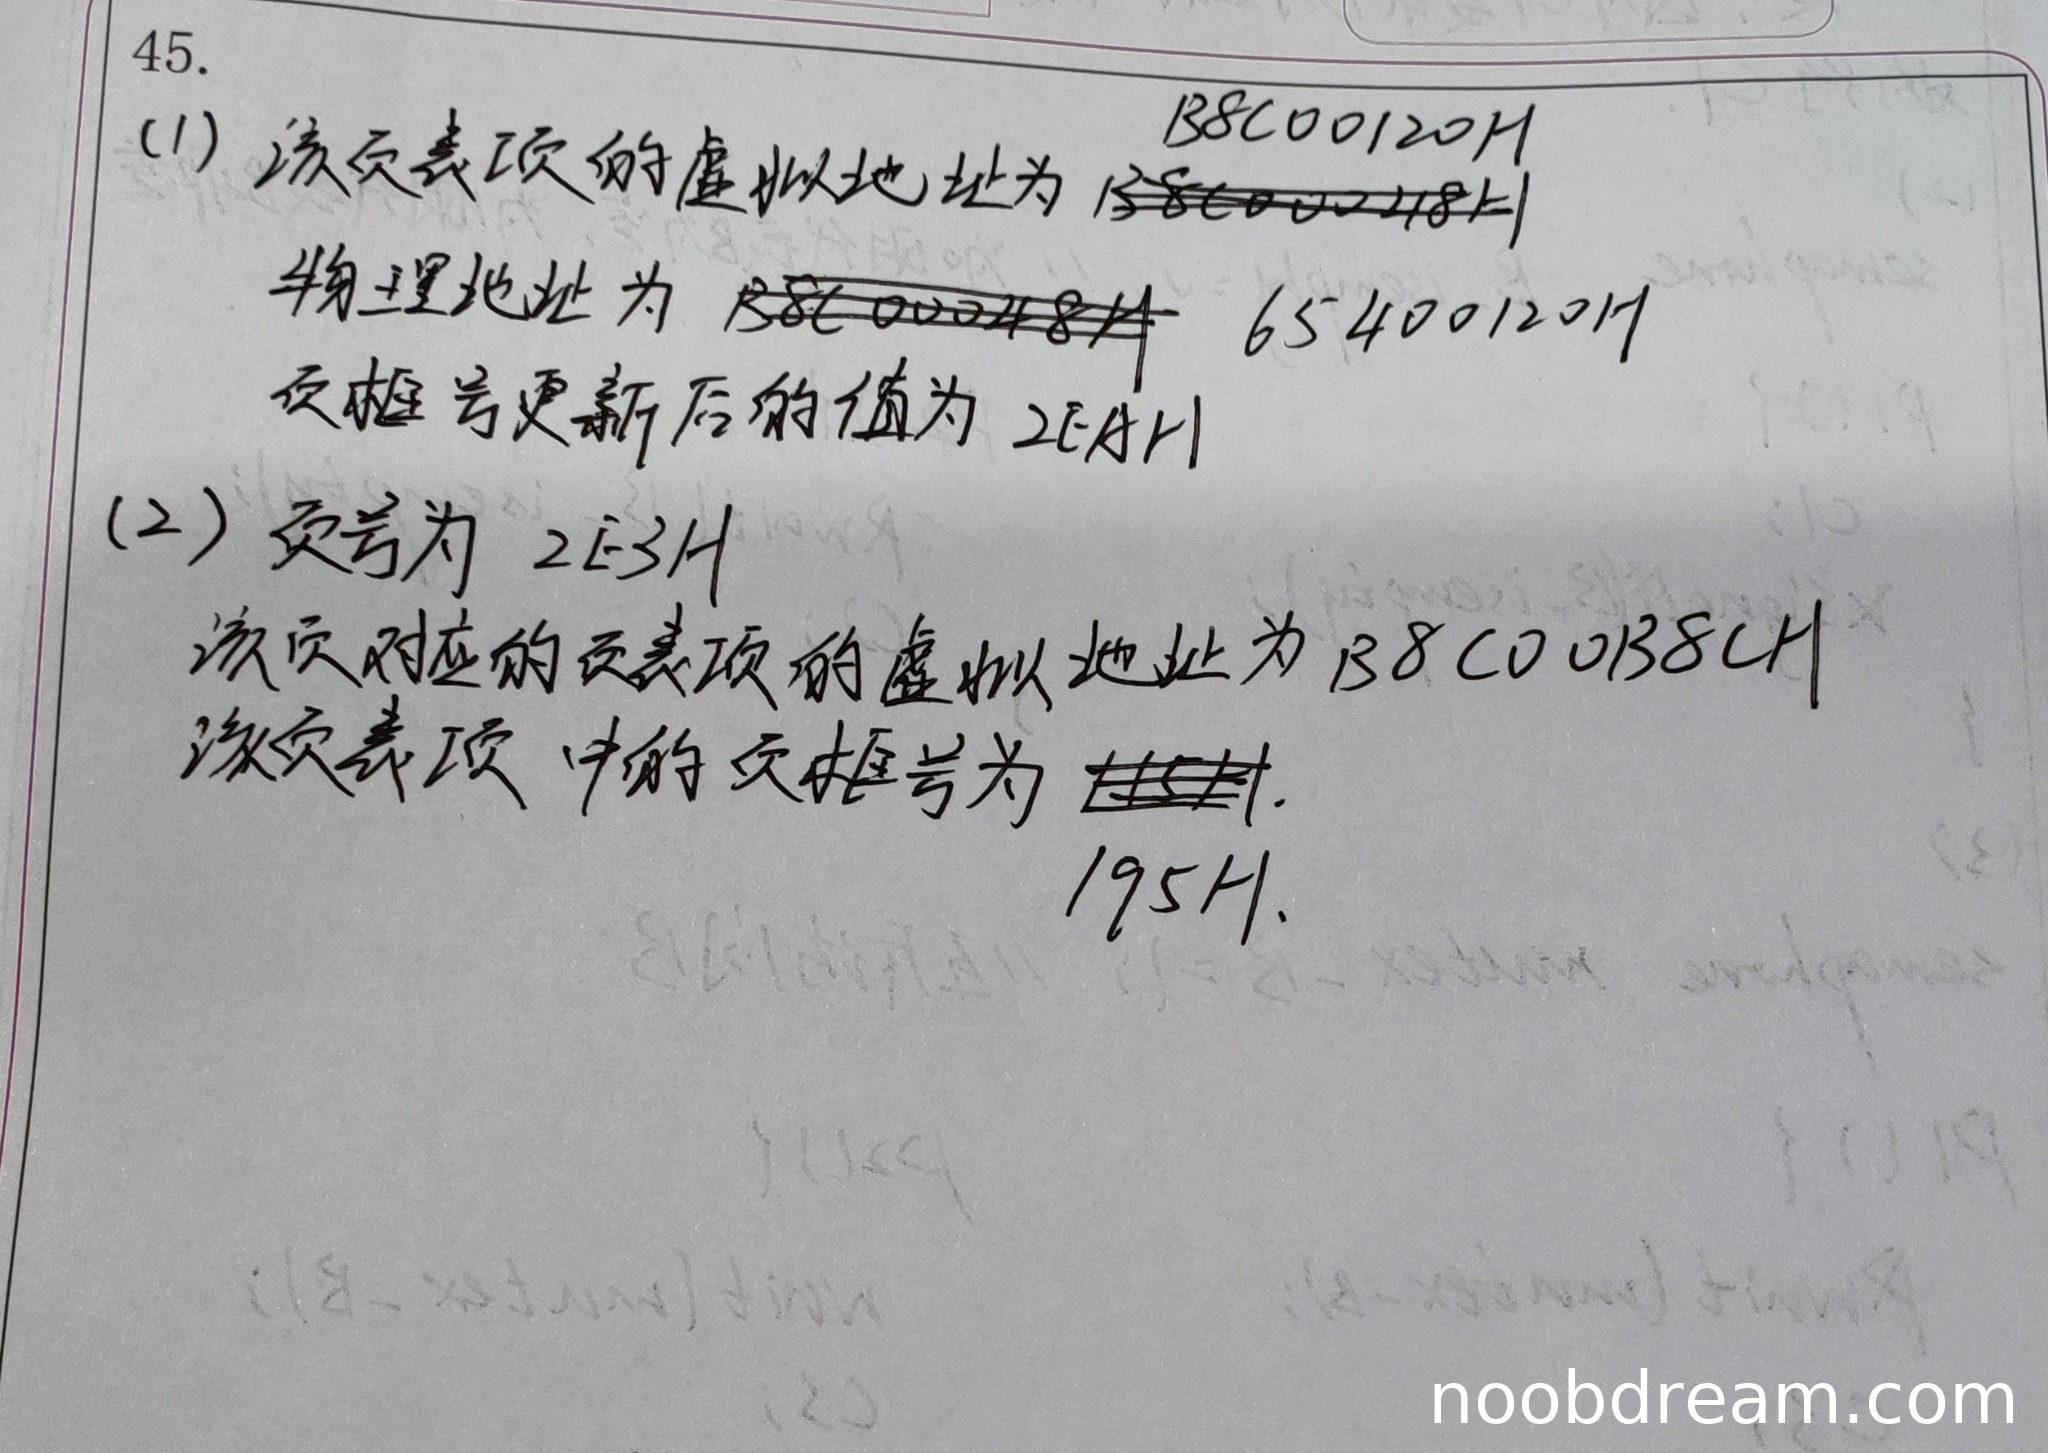 45.
(1) 该页表项的虚拟地址为 B8C00120H
B8C00048H
物理地址为 B8C00048H 65400120H
页框号更新后的值为 2EAH
(2) 页号为 2E3H
该页对应的页表项的虚拟地址为 B8C00B8CH
该页表项中的页框号为
195H.
noobdream.com